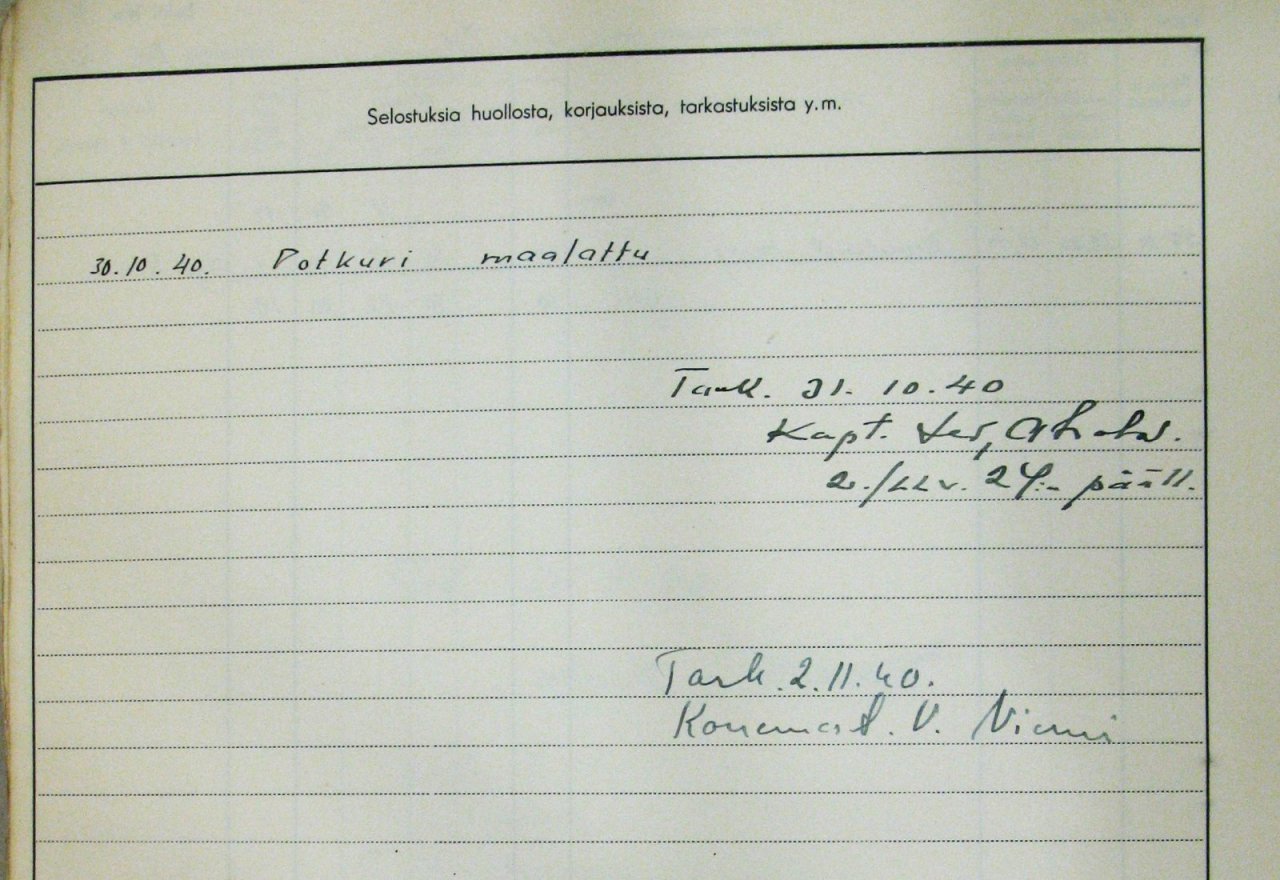 Selostuksia huollosta, korjauksista, tarkastuksista y.m.
30.10.40. Potkuri maalattu
Tark. 31.10.40
Kapt.
2./LLv. 24:n pääll.
Tark. 2.11.40.
Konemest. V. Niemi